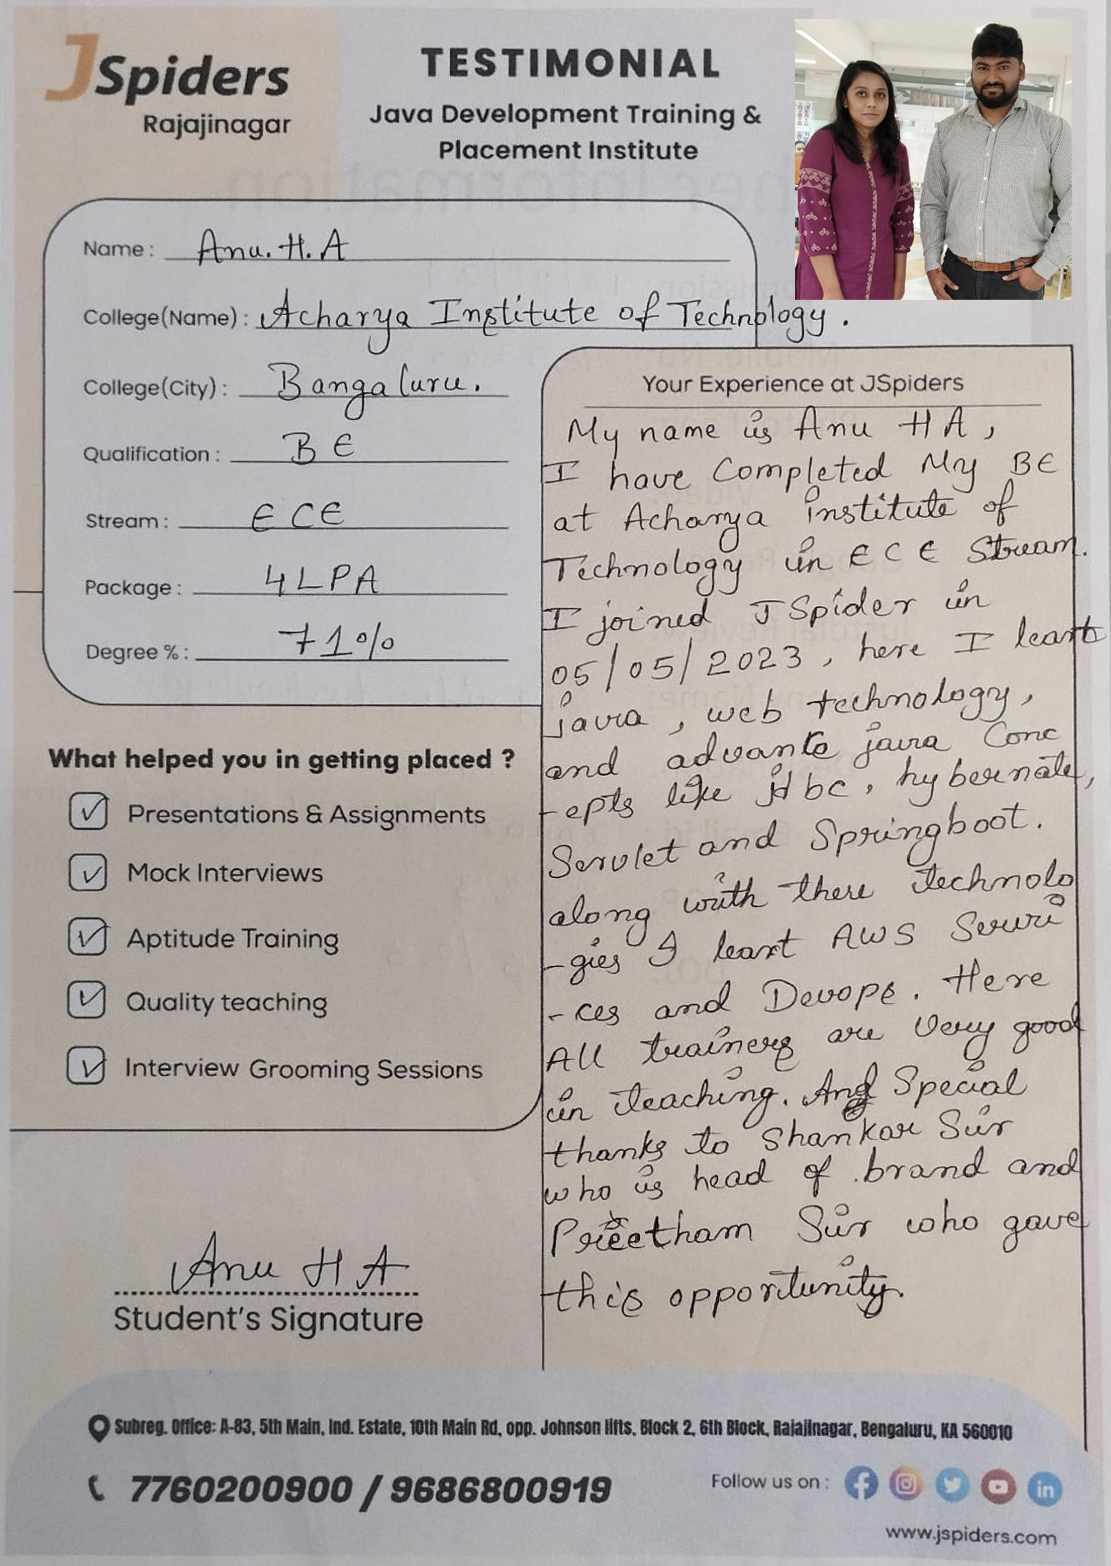 JSpiders
Rajajinagar
TESTIMONIAL
Java Development Training &
Placement Institute
Name : Anu. H. A
College(Name) : Acharya Institute of Technology .
College(City) : Bangaluru.
Qualification : B E
Stream : E C E
Package : 4 L P A
Degree % : 71%
What helped you in getting placed ?
Presentations & Assignments
Mock Interviews
Aptitude Training
Quality teaching
Interview Grooming Sessions
Anu H A
Student's Signature
Your Experience at JSpiders
My name is Anu H A,
I have Completed My BE
at Acharya institute of
Technology in E C E Stream.
I joined J Spider in
05/05/2023, here I leart
java, web technology,
and advante java Conc
-epts like jdbc, hybernate,
Servlet and Springboot.
along with there technolo
-gies I leart AWS Servi
-ces and Devops. Here
All trainers are Very good
in teaching. And Special
thanks to Shankar Sir
who is head of brand and
Preetham Sir who gave
this opportunity.
Subreg. Office: A-83, 5th Main, Ind. Estate, 10th Main Rd, opp. Johnson lifts, Block 2, 6th Block, Rajajinagar, Bengaluru, KA 560010
7760200900 / 9686800919
Follow us on :
www.jspiders.com